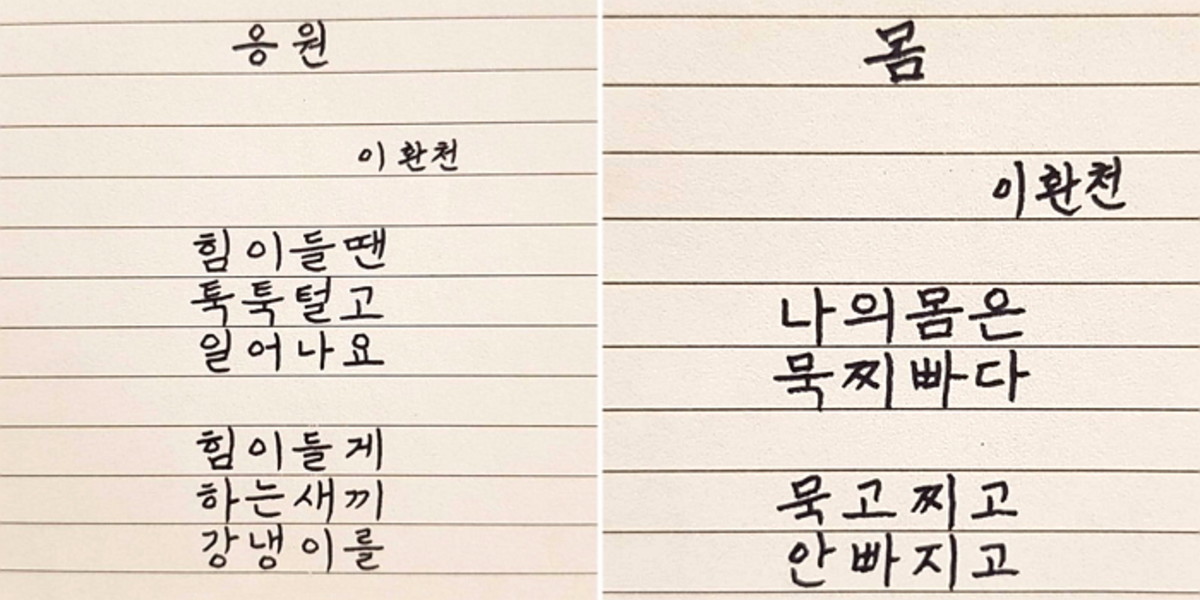 응원
이환천
힘이들땐
툭툭털고
일어나요
힘이들게
하는새끼
강냉이를
몸
이환천
나의몸은
묵찌빠다
묵고찌고
안빠지고